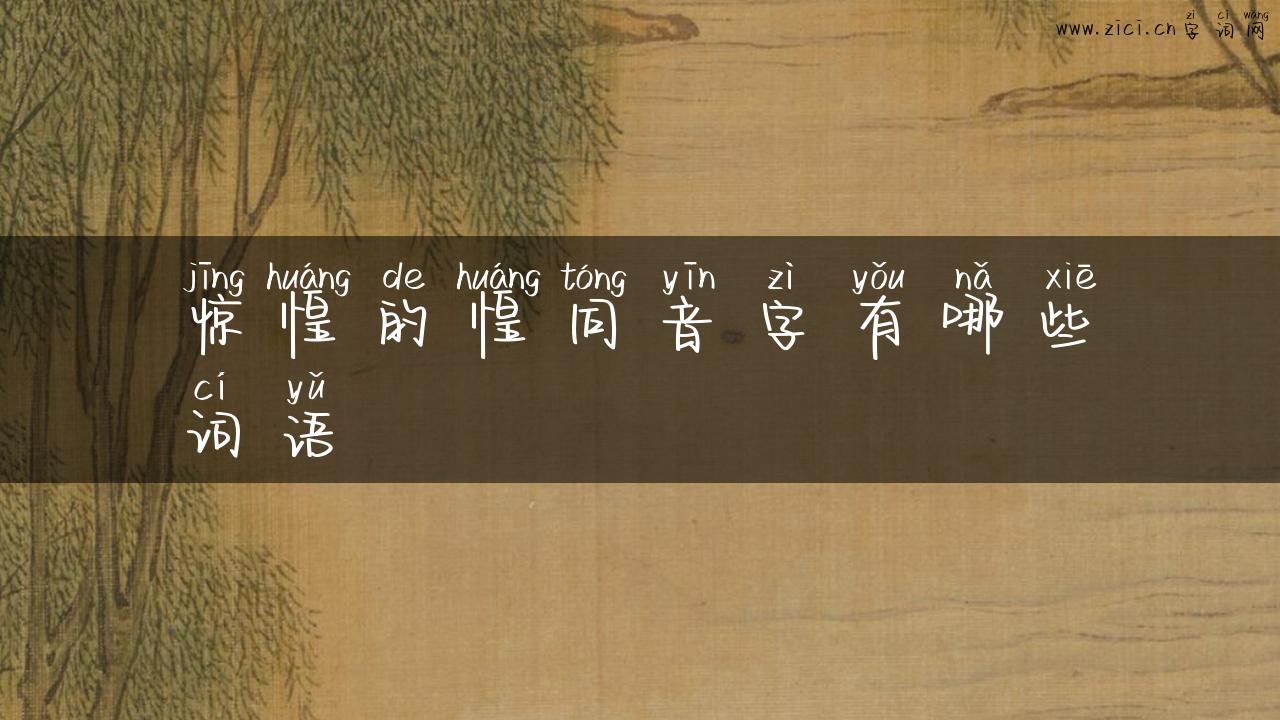 zì cí wǎng
www.zici.cn 字词网
jīng huáng de huáng tóng yīn zì yǒu nǎ xiē
惊惶的惶同音字有哪些
cí yǔ
词语